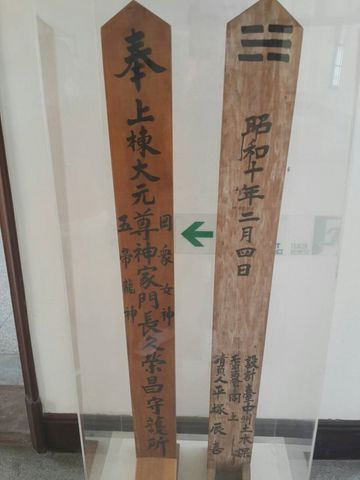 奉上棟大元尊神家門長久榮昌守護所
罔象女神
五帝龍神
昭和十年二月四日
設計臺中州土木課
請負人平塚辰喜